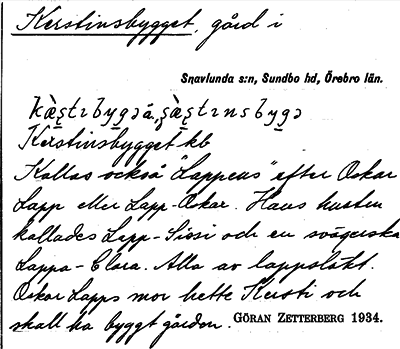 Kerstinsbygget, gård i
Snavlunda s:n, Sundbo hd, Örebro län.
Kerstinsbygget kb
Kallas också "Lappens" efter Oskar
Lapp eller Lapp-Oskar. Hans hustru
kallades Lapp-Sissi och en svägerska
Lappa-Clara. Alla av lappsläkt.
Oskar Lapps mor hette Kersti och
skall ha byggt gården. GÖRAN ZETTERBERG 1934.